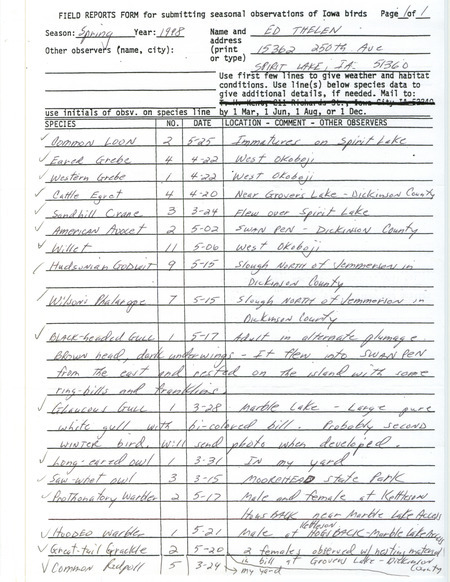 FIELD REPORTS FORM for submitting seasonal observations of Iowa birds Page 1 of 1
Season: Spring Year: 1998 Name and ED THELEN
address 15362 250th Ave
Other observers (name, city): (print
or type) SPIRIT LAKE, IA. 51360
Use first few lines to give weather and habitat
conditions. Use line(s) below species data to
give additional details, if needed. Mail to:
use initials of obsv. on species line by 1 Mar, 1 Jun, 1 Aug, or 1 Dec.
SPECIES NO. DATE LOCATION - COMMENT - OTHER OBSERVERS
Common Loon 2 5-25 Immatures on Spirit Lake
Eared Grebe 4 4-22 West Okoboji
Western Grebe 1 4-22 West Okoboji
Cattle Egret 4 4-20 Near Grovers Lake - Dickinson County
Sandhill Crane 3 3-24 Flew over Spirit Lake
American Avocet 2 5-02 SWAN PEN - Dickinson County
Willet 11 5-06 West Okoboji
Hudsonian Godwit 9 5-15 Slough North of Jemmerson in
Dickinson County
Wilson's Phalarope 7 5-15 Slough North of Jemmerson in
Dickinson County
BLACK-headed Gull 1 5-17 Adult in alternate plumage.
Brown head, dark underwings - It flew into SWAN PEN
from the east and rested on the island with some
ring-bills and franklins.
Glaucous Gull 1 3-28 Marble Lake - Large pure
white gull with bi-colored bill. Probably second
winter bird. Will send photo when developed.
Long-eared owl 1 3-31 IN my yard
Saw-whet owl 3 3-15 MOOREHEAD State Park
Prothonotary Warbler 2 5-17 Male and female at Kettleson
Hogs BACK near Marble Lake Access
Hooded Warbler 1 5-21 Male at Kettleson HOGSBACK-Marble Lake Access
Great-tail Grackle 2 5-20 2 females observed w/ nesting material
in bill at Grovers Lake - Dickinson County
Common Redpoll 5 3-24 → my yard